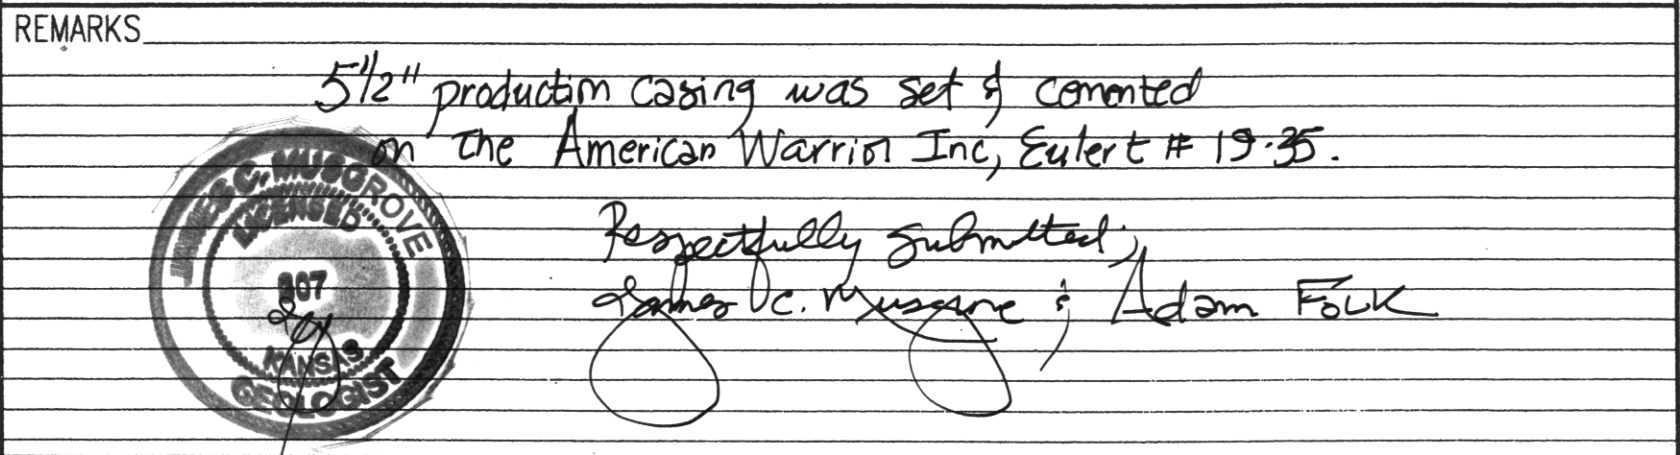 REMARKS
5 1/2" production casing was set & cemented
on the American Warrior Inc, Eulert # 19-35.
Respectfully submitted;
James C. Musgrove ; Adam Folk
JAMES C. MUSGROVE
LICENSED
KANSAS
GEOLOGIST